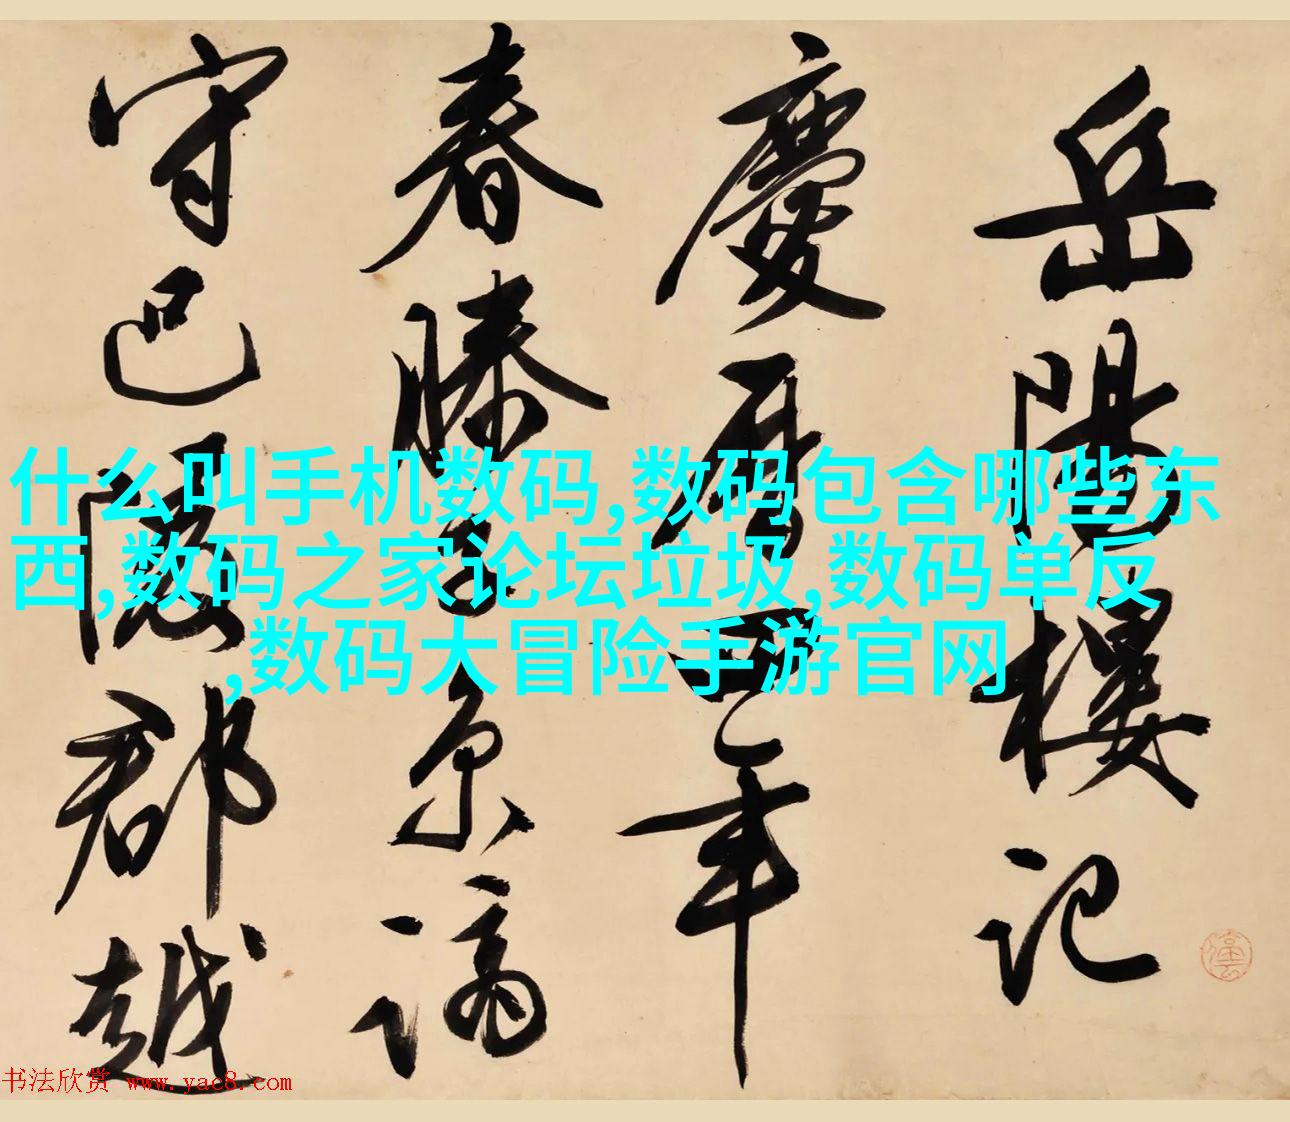 岳陽樓記
慶曆四年
春滕子京謫
守巴陵郡越
什么叫手机数码,数码包含哪些东
西,数码之家论坛垃圾,数码单反
,数码大冒险手游官网
书法欣赏 www.yac8.com